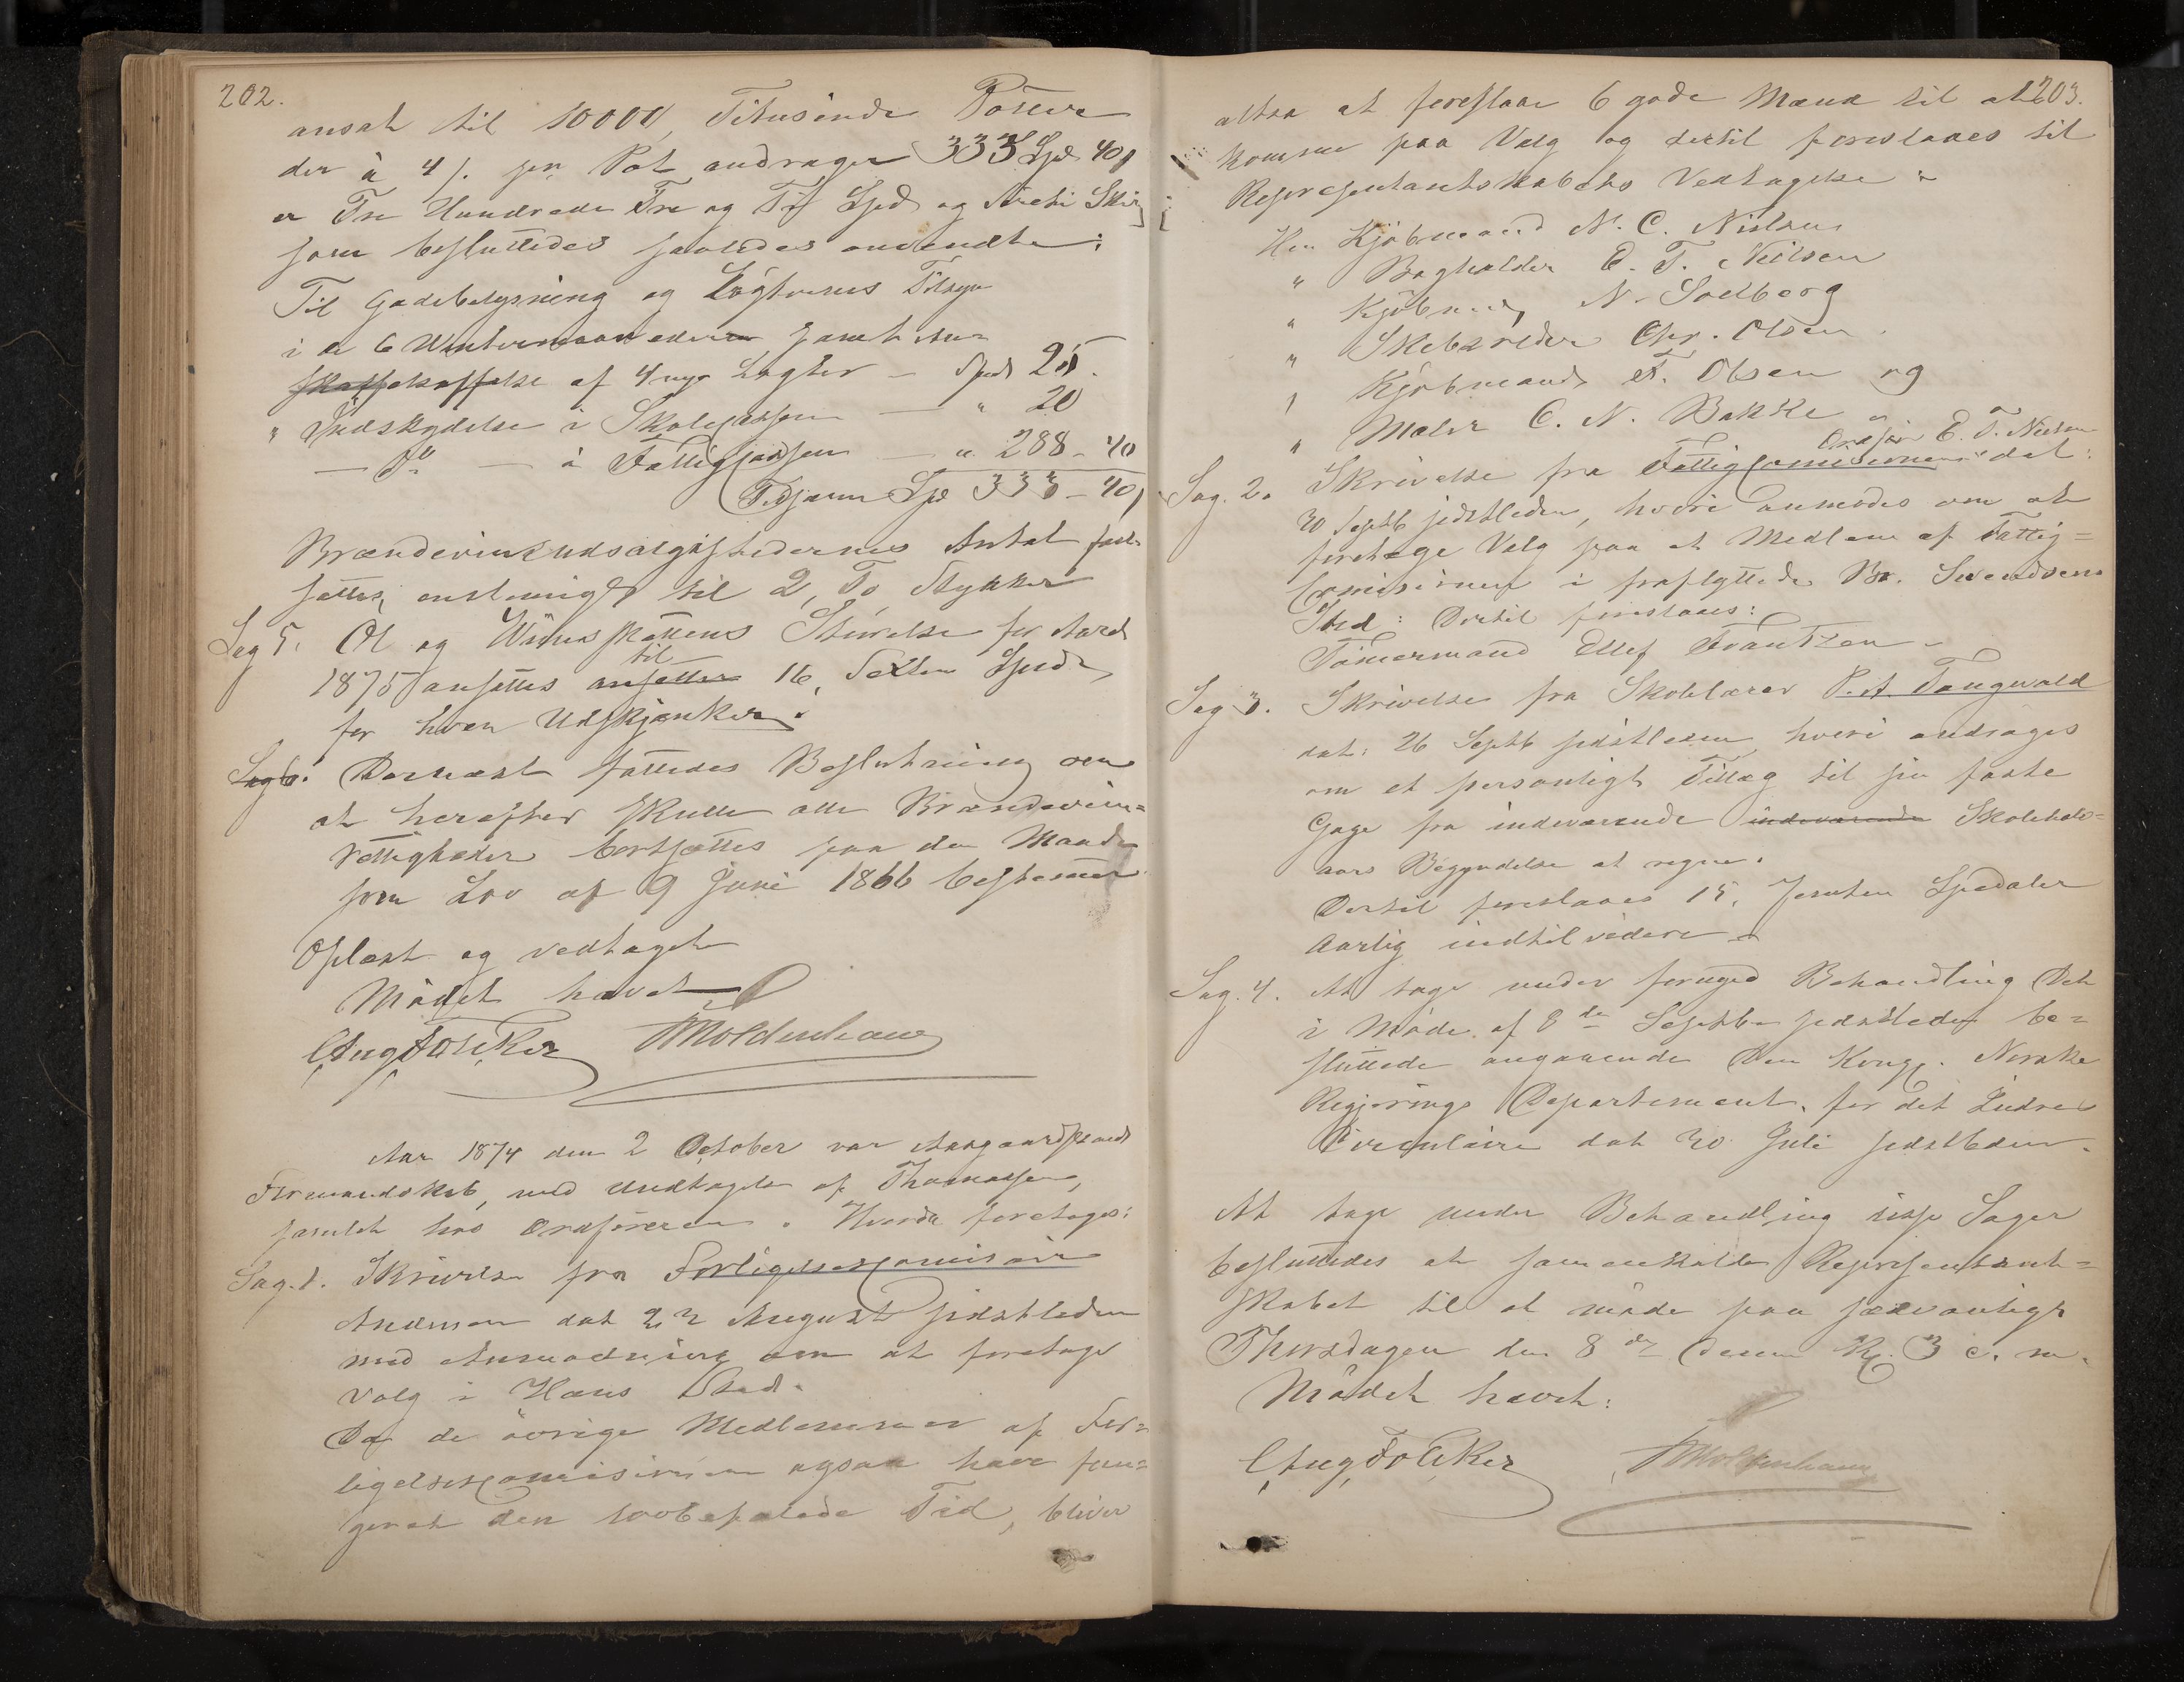 202.
ansat til 10000, Titusinde Potter
der à 4 /. pr. Pot andrager 333 Spd 40 /
er Tre Hundrede Tre og Tr. Spd og Føreti Skill
som besluttedes saaledes anvendte:
Til Gadebelysning og Løgternes Tilsyn
i de 6 Wintermaaneder samt An-
skaffelse af 4 nye Løgter – Spd 25.
" Indskydelse i Skolekassen — " 20
— Do — i Fattigkassen — " 288 - 40
Tilsamn Spd 333 - 40 /
Brændeviinsudsalgsstedernes Antal fast-
sattes, enstemigt til 2, To Stykker
Sag 5. Øl og Wiinskattens Størrelse for Aaret
1875 ansattes ansattes til 16, Sexten Spd
for hver Udskjænker.
Sag 6. Dernæst fattedes Beslutning om
at herefter skulle alle Brændeviins-
rettigheder bortsættes paa den Maade
som Lov af 9 Juni 1866 bestemmer
Oplæst og vedtaget
Mødet hævet
C Aug Folker TMoldenhauer
Aar 1874 den 2 October var Aasgaardstrands
Formandskab, med Undtagelse af Thomassen,
samlet hos Ordføreren. Hvorda foretoges:
Sag. 1. Skrivelse fra Forligelsescomisair
Andersen dat 22 August sidstleden
med Anmodning om at foretage
Valg i Hans Sted.
Da de øvrige Medlemmer af For-
ligelsescomisionen ogsaa have fun-
geret den lovbefalede Tid, bliver
203.
altsaa at foreslaae 6 gode Mænd til at
komme paa Valg og dertil foreslaaes til
Representantskabets Vedtagelse "
Hrr Kjøbmand N. C. Nielsen
" Bogholder E. T. Nielsen
" Kjøbmand N. Soelberg
" Skibsreder Chr. Olsen
" Kjøbmand F. Olsen og
" Maler C. N. Bakke
Ordfører E. T. Nielsen
Sag. 2. Skrivelse fra Fattigcomisionen dat:
30 Septb sidstleden, hvori anmodes om at
foretage Valg paa et Medlem af Fattig-
Comisionen i fraflyttede Br. Svendsens
Sted: Dertil foreslaaes:
Tømermand Ellef Frantzen –
Sag 3. Skrivelse fra Skolelærer P. A. Tangvald
dat: 26 Septb sidstleden hvori andrages
om et personligt Tillæg til sin faste
Gage fra indeværende indeværende Skolehalv-
aars Begyndelse at regne.
Dertil foreslaaes 15, femten Speciedaler
Aarlig indtil videre –
Sag. 4. At tage under fornyed Behandling Det
i Møde af 8de Septbr sidstleden be-
sluttede angaaende Den Kongl. Norske
Regjerings Departement for det Indres
Circulaire dat 30 Juli sidstleden.
At tage under Behandling disse Sager
besluttedes at sammenkalde Representant-
skabet til at møde paa sædvanligt
Thorsdagen den 8de dennes Kl. 3 e. m.
Mødet hævet:
C Aug Folker TMoldenhauer